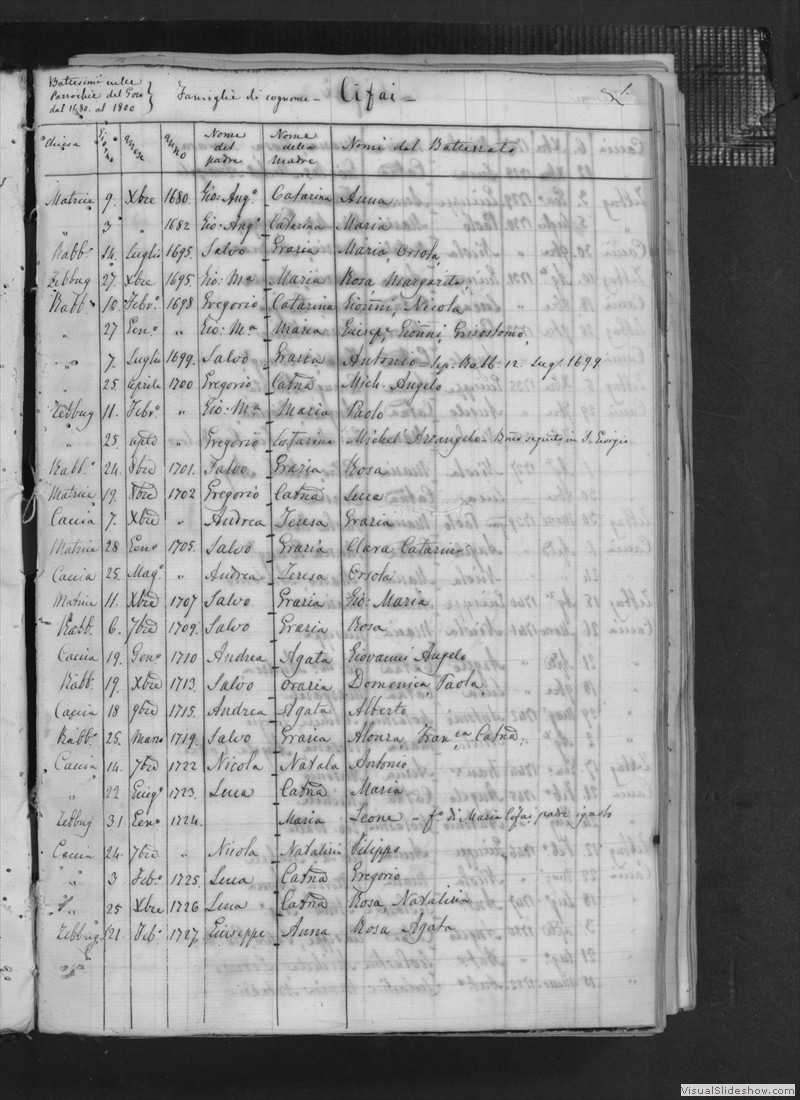 Battesimi nelle
Parrochie del Gozo
dal 1680. al 1800
Famiglie di cognome - Cifai -
1.
Chiesa Giorno Mese Anno Nome del padre Nome della madre Nomi del Battezzato
Matrice 9. Xbre 1680. Gio: Ang.o Catarina Anna
" 3 " 1682 Gio: Ang.o Catarina Maria
Rabb.o 14. Luglio 1695. Salvo Grazia Maria Orsola
Zebbug 27 Xbre 1695. Gio: M.a Maria Rosa Margarita
Rabb.o 10. Febr.o 1698 Gregorio Catarina Gioñni, Nicola
" 27 Gen.o " Gio: M.a Maria Giusep.e Gioñni, Grisostomo
" 7. Luglio 1699. Salvo Grazia Antonio - Sep. Rabb. 12. Lug. 1699
" 25 Aprile 1700 Gregorio Catña Mich. Angelo
Zebbug 11. Febr.o " Gio: M.a Maria Paolo
" 25. aple " Gregorio Costarina Michel' Arcangelo - in S. Giorgio
Rabb.o 24. 8bre 1701. Salvo Grazia Rosa
Matrice 19. 8bre 1702 Gregorio Catña Luca
Caccia 7. Xbre " Andrea Teresa Grazia
Matrice 28 Gen.o 1705. Salvo Grazia Clara Catarina
Caccia 25. Mag.o " Andrea Teresa Orsola
Matrice 11. Xbre 1707 Salvo Grazia Gio: Maria
Rabb. 6. 7bre 1709. Salvo Grazia Rosa
Caccia 19. Gen.o 1710 Andrea Agata Giovanni Angelo
Rabb. 19. Xbre 1713. Salvo Orazia Domenica, Paola
Caccia 18 9bre 1715. Andrea Agata Alberto
Rabb.o 25. Marzo 1719. Salvo Grazia Alonza, Fran.ca Catña
Caccia 14. 7bre 1722 Nicola Natala Antonio
" 22 Giug.o 1723. Luca Catña Maria
Zebbug 31. Gen.o 1724. Maria Leone - f.o di Maria Cifai, padre ignoto
Caccia 24. 7bre " Nicola Natalizia Filippo
" 3 Feb.o 1725. Luca Catña Gregorio
" 25 Xbre 1726 Luca Catña Rosa, Natalizia
Zebbug 21. Feb.o 1727. Giuseppe Anna Rosa Agata
VisualSlideshow.com